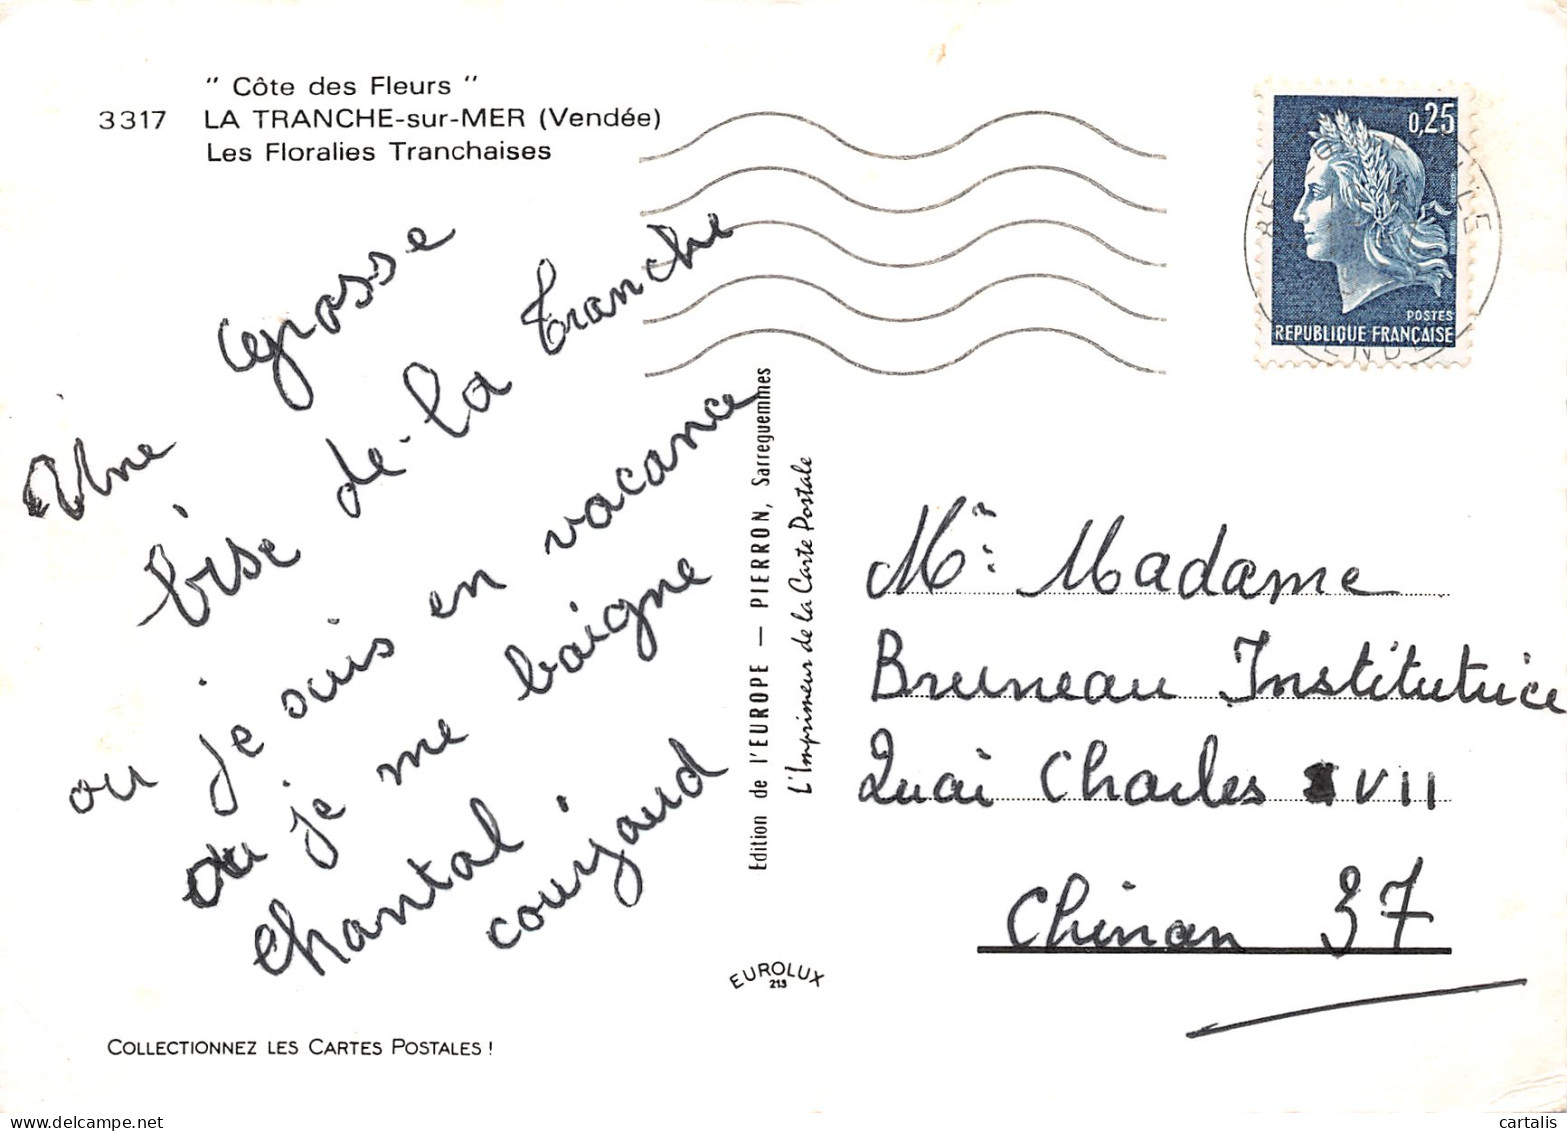 " Côte des Fleurs "
3317 LA TRANCHE-sur-MER (Vendée)
Les Floralies Tranchaises
Une grosse
bise de-la tranche
ou je suis en vacance
ou je me baigne
chantal.
courjaud
Edition de l'EUROPE — PIERRON, Sarreguemmes
L'Imprimeur de la Carte Postale
EUROLUX
213
COLLECTIONNEZ LES CARTES POSTALES !
0,25
POSTES
REPUBLIQUE FRANÇAISE
Mr: Madame
Bruneau Institutrice
Quai Charles VII
Chinon 37
cartalis